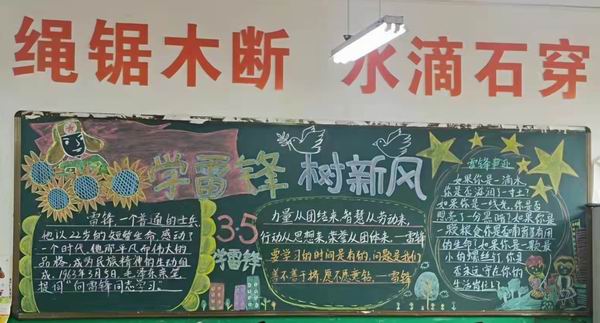 绳锯木断 水滴石穿
学雷锋 树新风
雷锋,一个普通的士兵,
他以22岁的短暂生命感动了
一个时代,他那平凡而伟大的
品格,成为民族精神的生动组
成,1963年3月5日,毛泽东亲笔
提词"向雷锋同志学习"。
3·5
学雷锋
力量从团结来,智慧从劳动来,
行动从思想来,荣誉从团体来。—雷锋
要学习的时间是有的,问题是我们
善不善于挤,愿不愿意钻。—雷锋
如果你是一滴水,
你是否滋润了一寸土?
如果你是一线光,你是否
照亮了一份黑暗?如果你是
一股粮食,你是否哺育了有用
的生命?如果你是一颗最
小的螺丝钉,你是
否永远守在你的
生活岗位上?